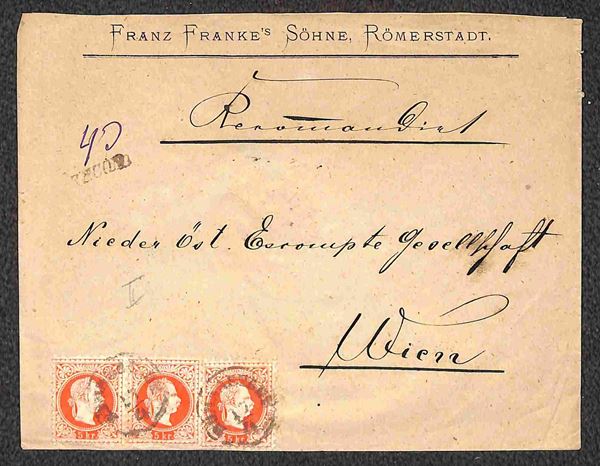 FRANZ FRANKE'S SÖHNE, RÖMERSTADT.
Recommandirt
Nieder Öst. Escompte Gesellschaft
II
Wien
5 kr. 5 kr. 5 kr.